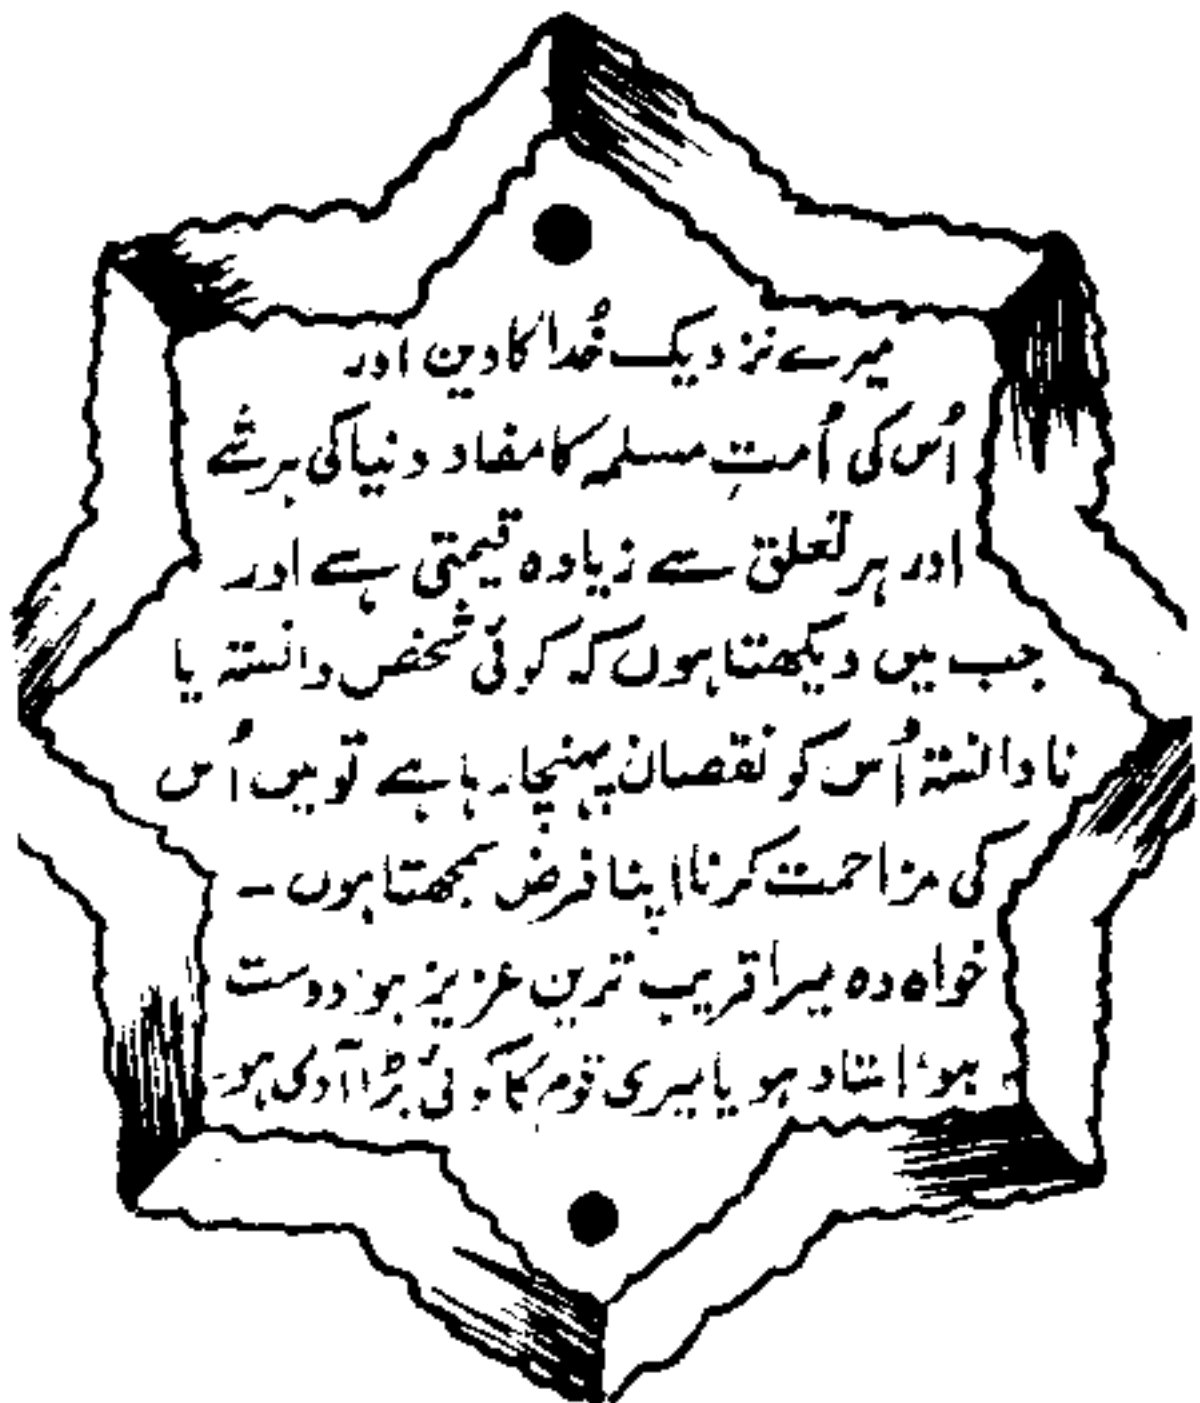 میرے نزدیک خُدا کا دین اور
اُس کی اُمتِ مسلمہ کا مفاد دنیا کی ہر شے
اور ہر تعلق سے زیادہ قیمتی ہے اور
جب میں دیکھتا ہوں کہ کوئی شخص دانستہ یا
نادانستہ اُس کو نقصان پہنچا رہا ہے تو میں اُس
کی مزاحمت کرنا اپنا فرض سمجھتا ہوں ۔
خواہ وہ میرا قریب ترین عزیز ہو، دوست
ہو، استاد ہو یا میری قوم کا کوئی بڑا آدمی ہو۔